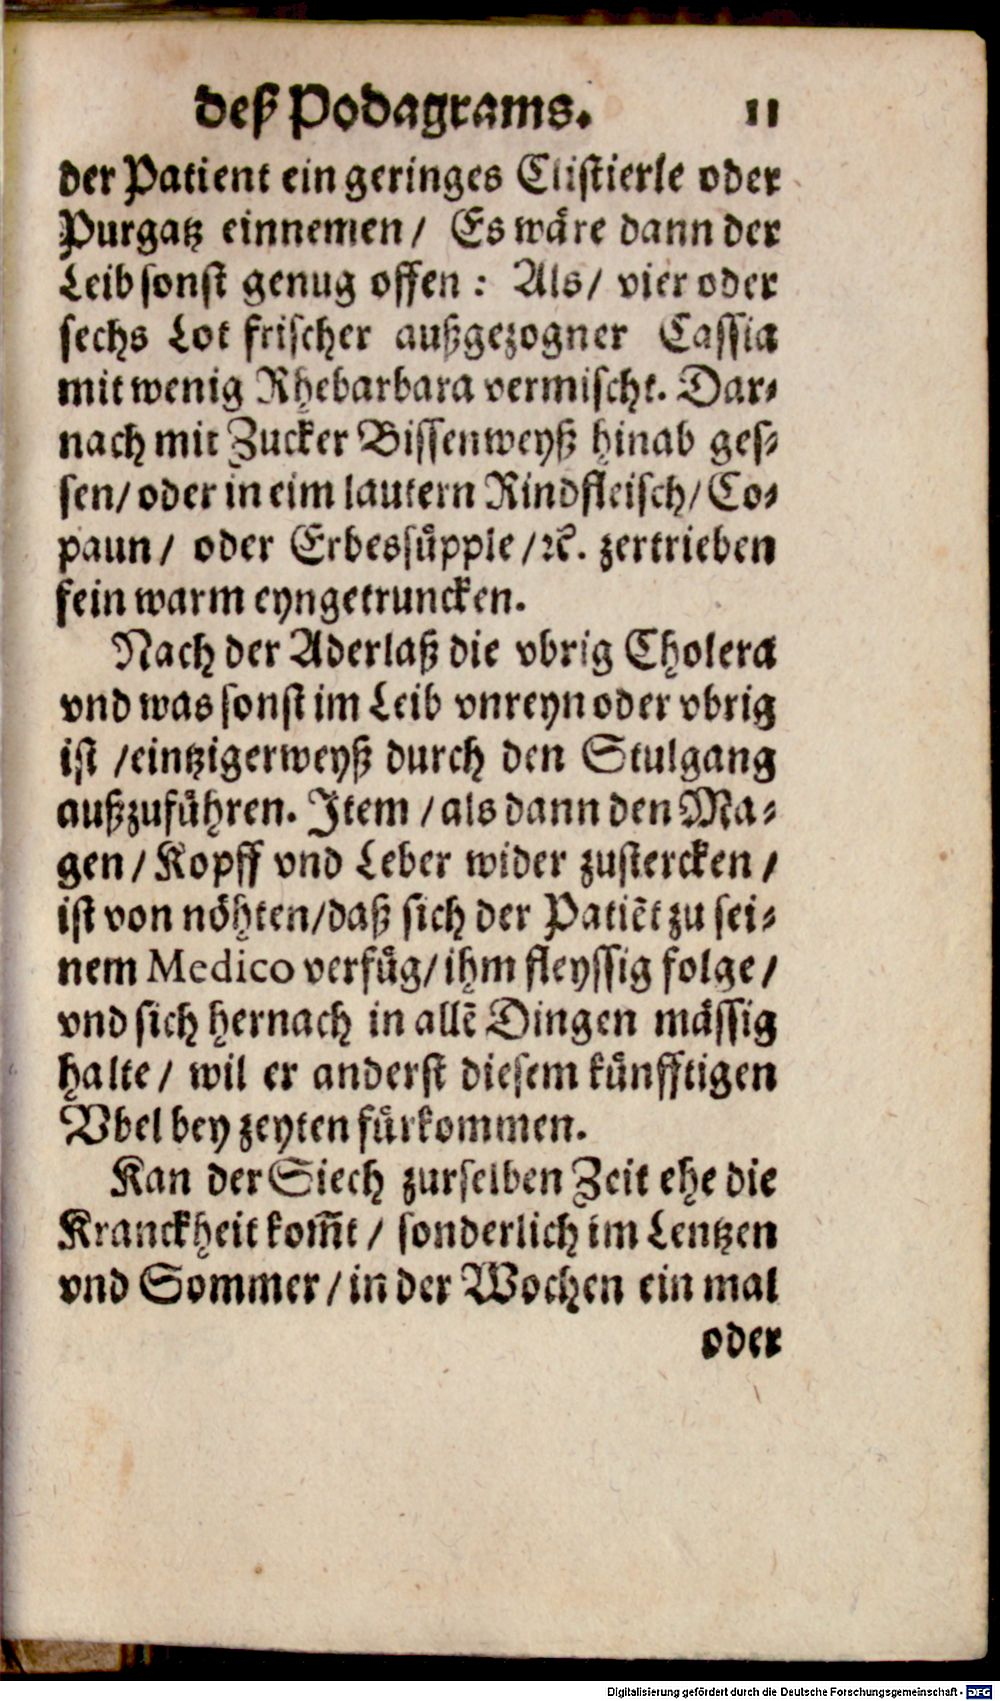 deß Podagrams. 11
der Patient ein geringes Clistierle oder
Purgatz einnemen / Es wäre dann der
Leib sonst genug offen : Als / vier oder
sechs Lot frischer außgezogner Cassia
mit wenig Rhebarbara vermischt. Dar⸗
nach mit Zucker Bissenweyß hinab ges⸗
sen / oder in eim lautern Rindfleisch / Co⸗
paun / oder Erbessüpple / ꝛc. zertrieben
fein warm eyngetruncken.
Nach der Aderlaß die vbrig Cholera
vnd was sonst im Leib vnreyn oder vbrig
ist / eintzigerweyß durch den Stulgang
außzuführen. Item / als dann den Ma⸗
gen / Kopff vnd Leber wider zustercken /
ist von nöhten / daß sich der Patiēt zu sei⸗
nem Medico verfüg / ihm fleyssig folge /
vnd sich hernach in allē Dingen mässig
halte / wil er anderst diesem künfftigen
Vbel bey zeyten fürkommen.
Kan der Siech zurselben Zeit ehe die
Kranckheit kom̄t / sonderlich im Lentzen
vnd Sommer / in der Wochen ein mal
oder
Digitalisierung gefördert durch die Deutsche Forschungsgemeinschaft - DFG